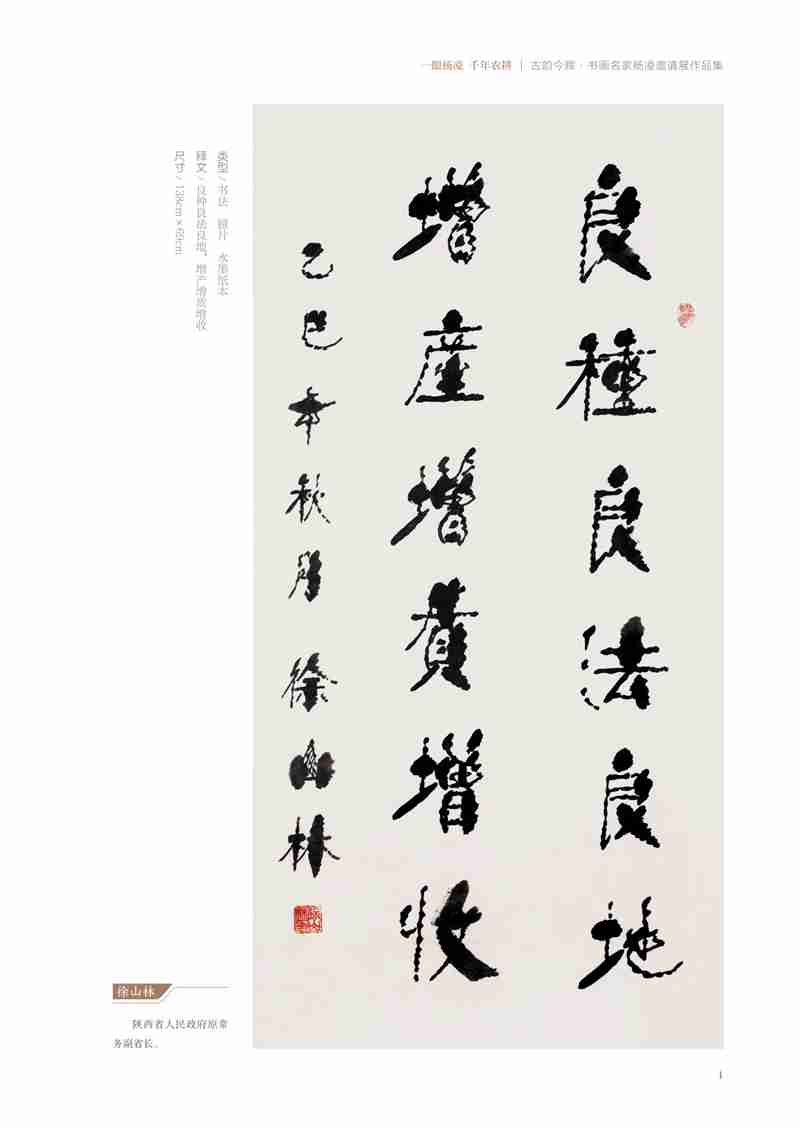 一眼杨凌 千年农耕 | 古韵今辉·书画名家杨凌邀请展作品集
良種良法良地
增產增質增收
乙巳年秋月 徐山林
类型/书法 镜片 水墨纸本
释文/良种良法良地，增产增质增收
尺寸/138cm×69cm
徐山林
陕西省人民政府原常
务副省长。
1